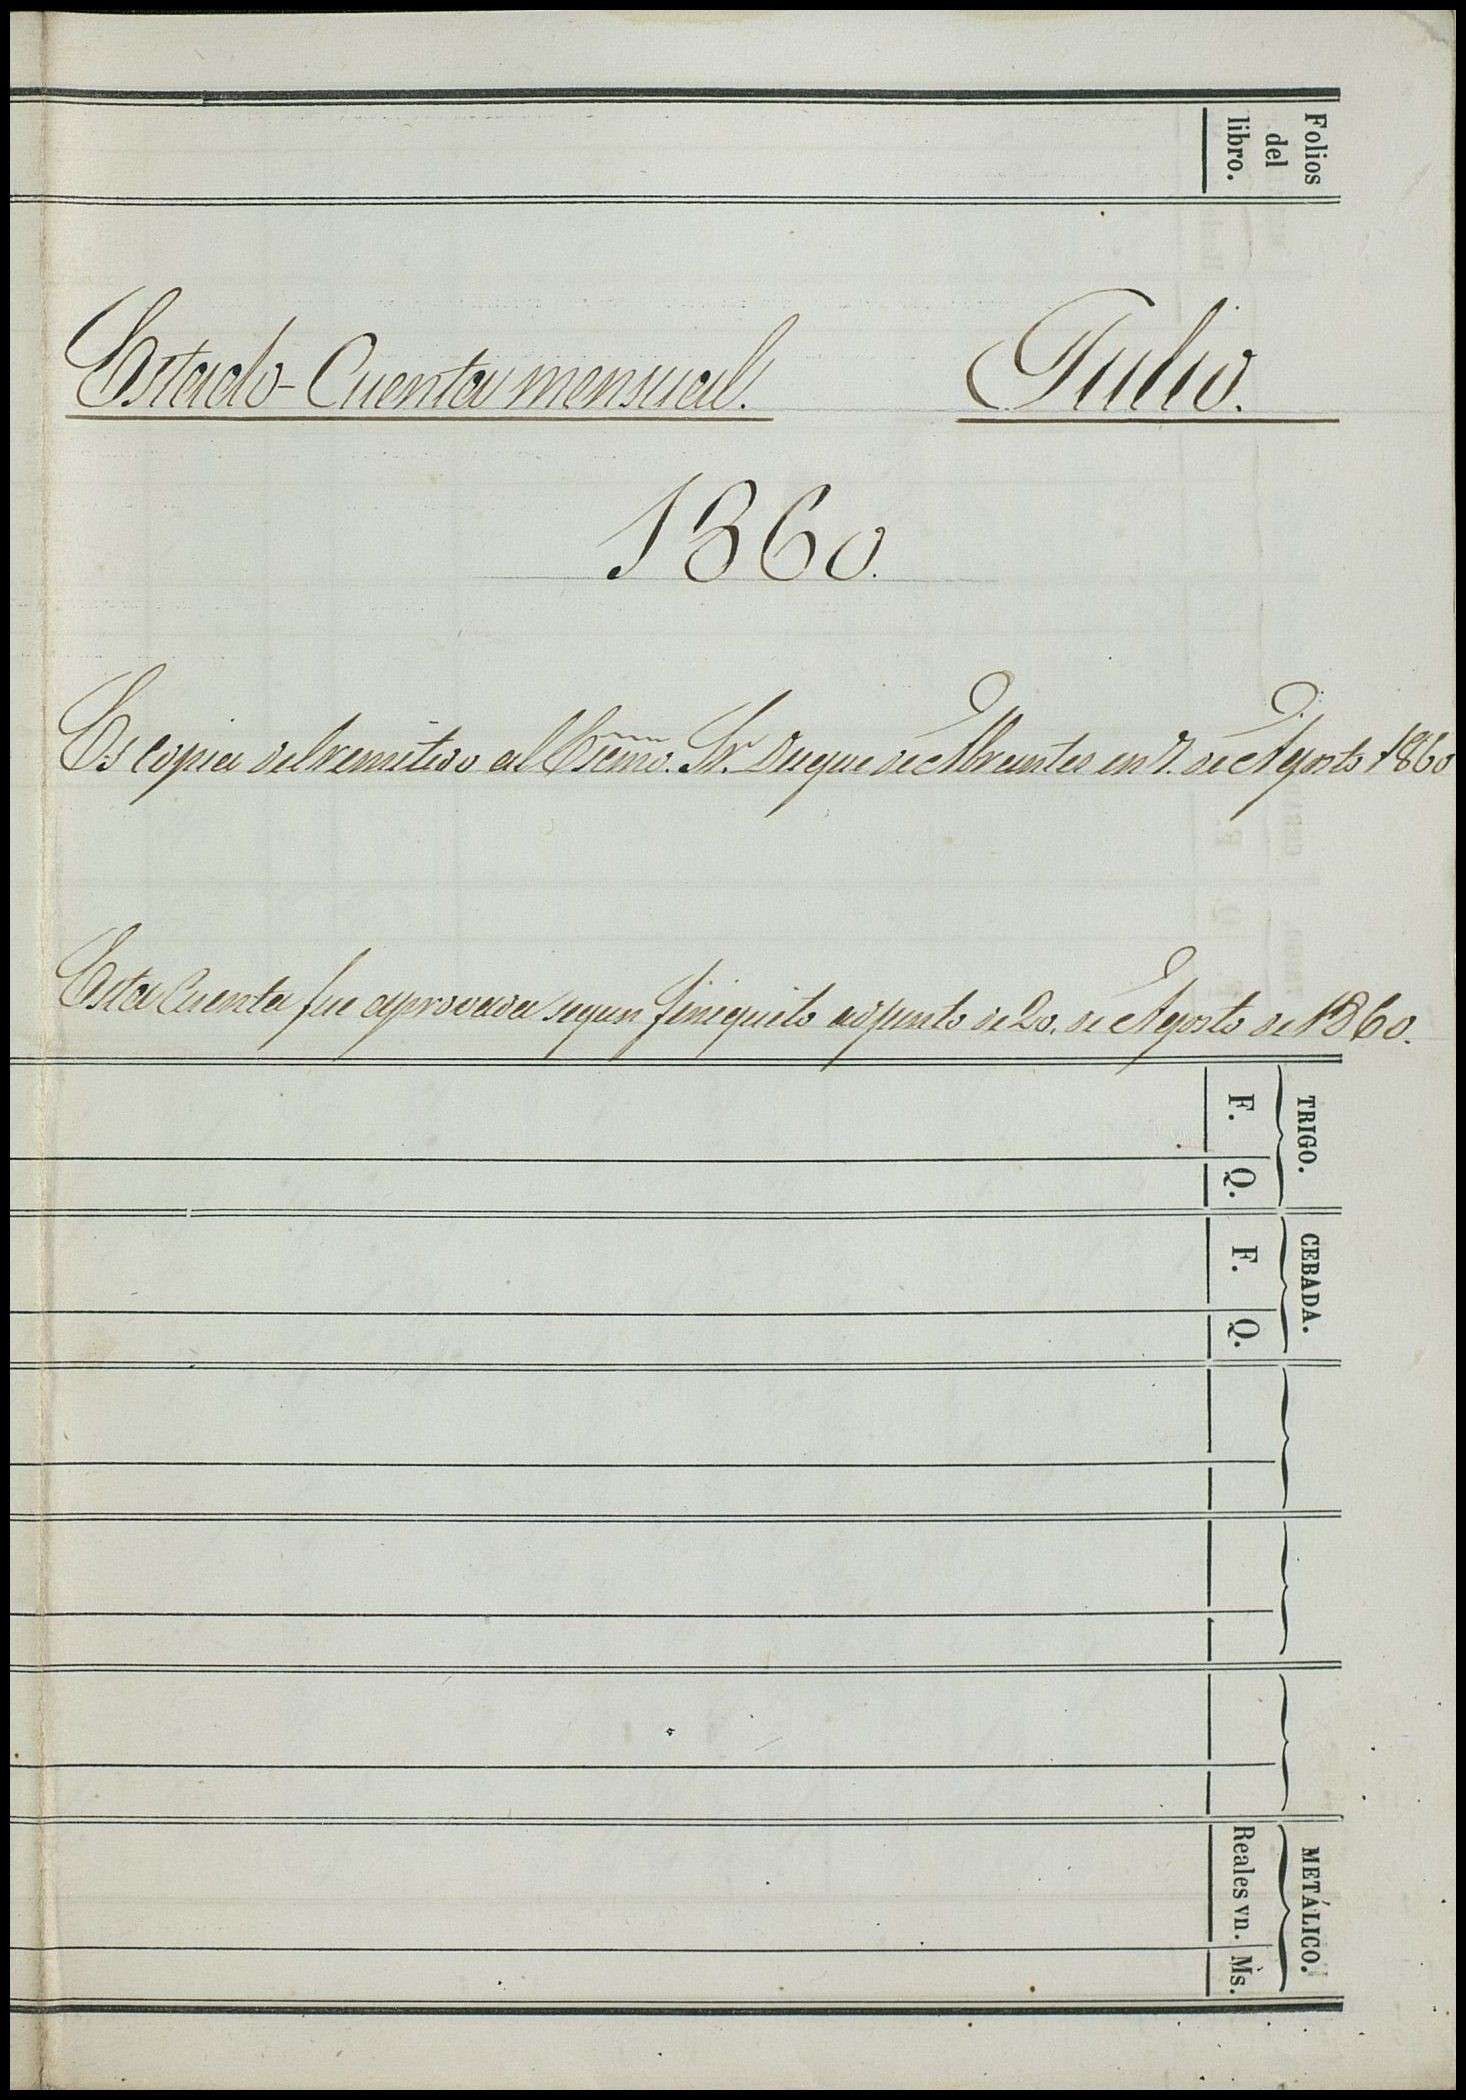 Folios
del
libro.
Estado-Cuenta mensual. Julio.
1860.
Es copia del remitido al Escmo. Sr. Duque de Abrantes en 7. de Agosto 1860
Esta Cuenta fue aprovada segun finiquito adjunto de 20. de Agosto de 1860.
TRIGO.
F. Q.
CEBADA.
F. Q.
METÁLICO.
Reales vn. Ms.